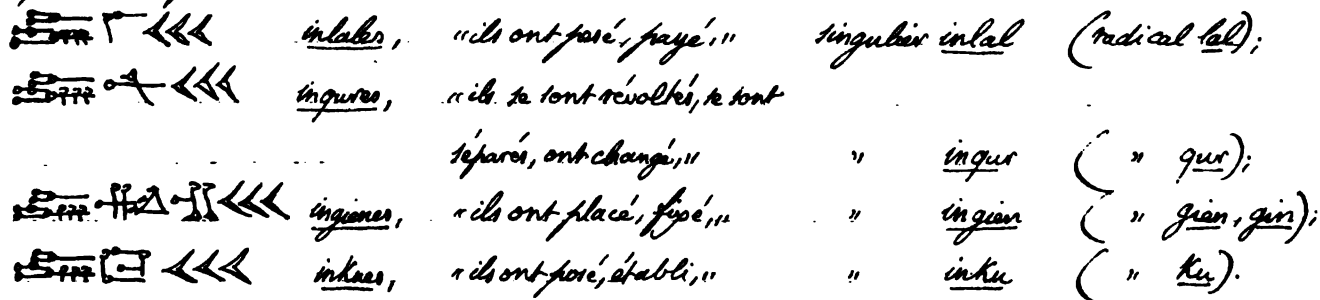 inlales, „ils ont posé, payé,” singulier inlal (radical lal);
inqures, „ils se sont révoltés, se sont
séparés, ont changé,” " inqur ( " qur);
ingienes, „ils ont placé, fixé,” " ingien ( " gien, gin);
inkues, „ils ont posé, établi,” " inku ( " ku).